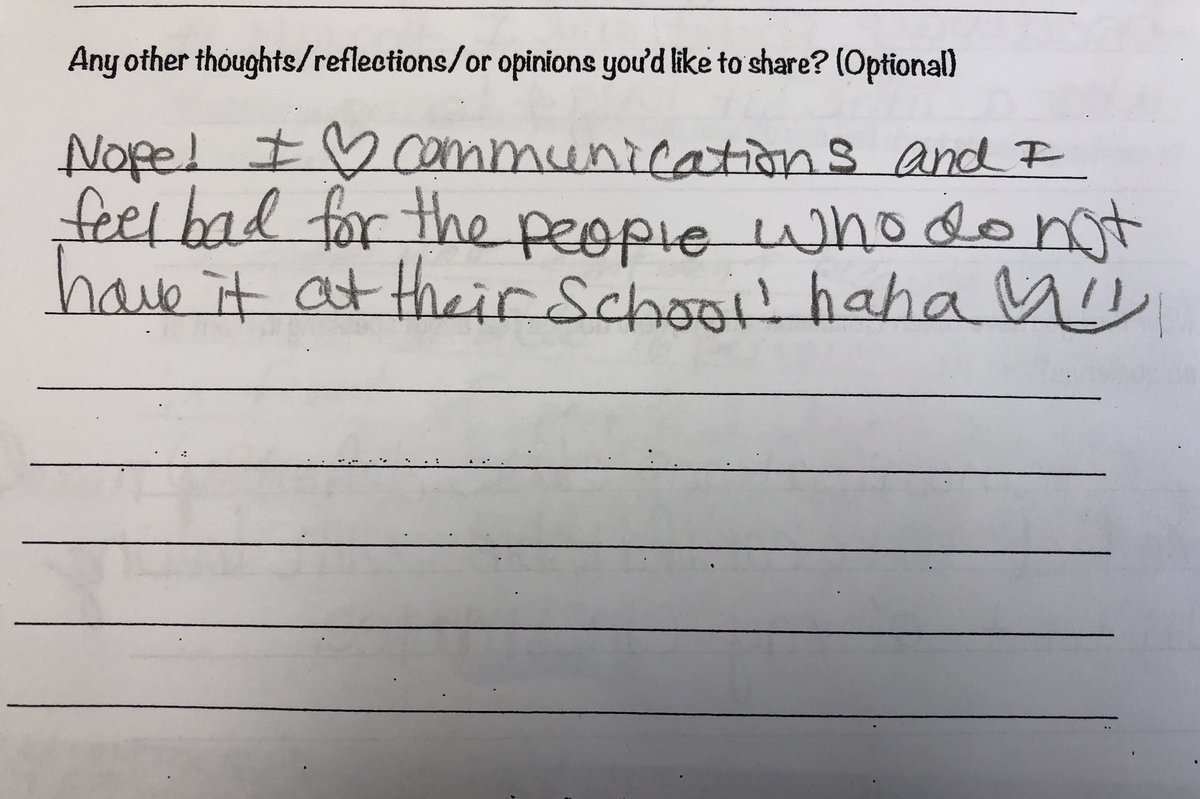 Any other thoughts/reflections/or opinions you'd like to share? (Optional)
Nope! I ♡ communications and I
feel bad for the people who do not
have it at their School! haha ♡ :)